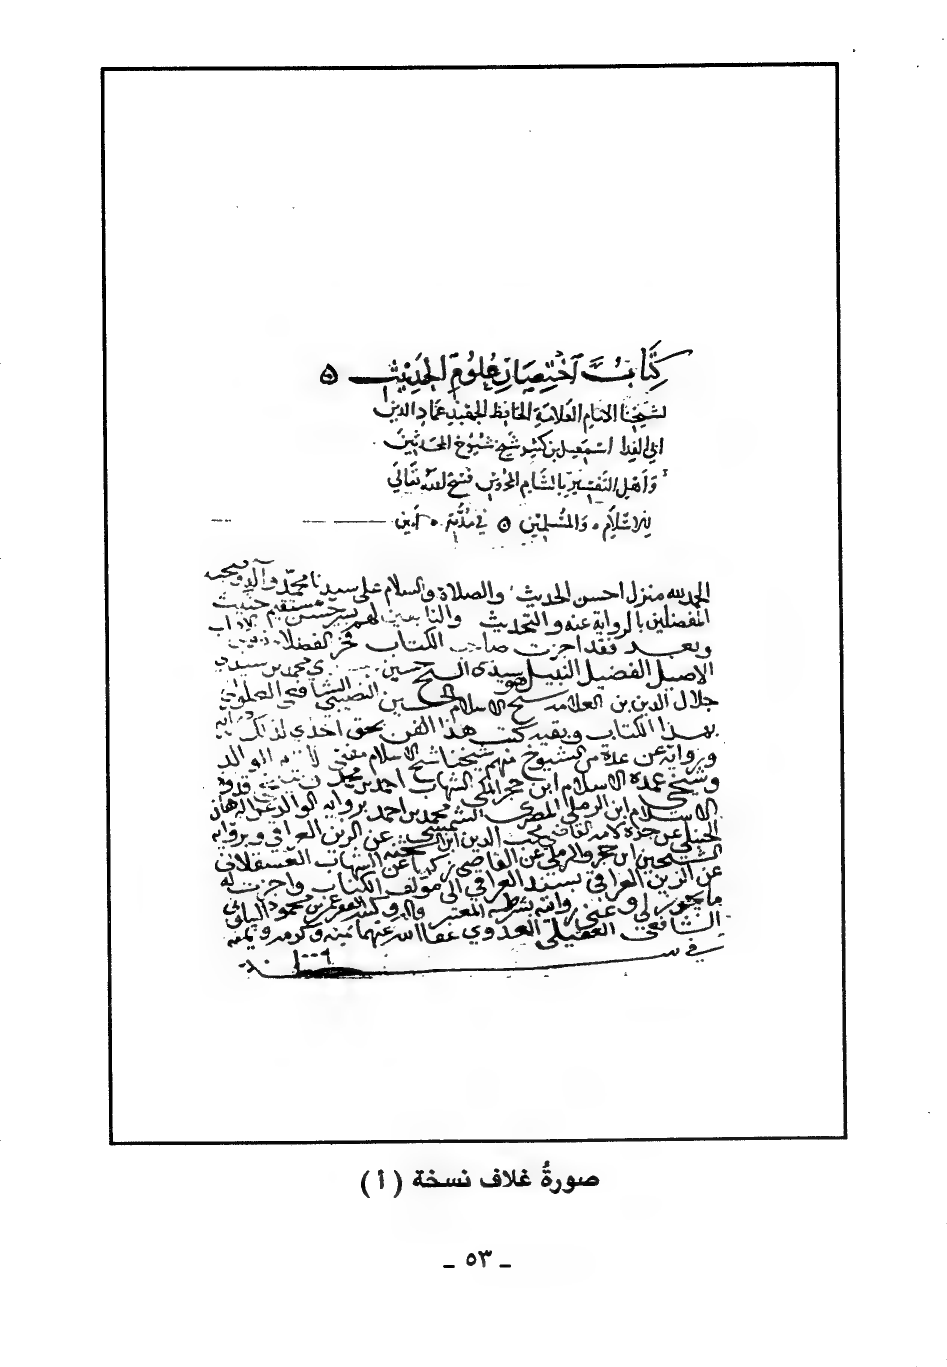 كِتَابُ اخْتِصَارِ عُلُومِ الحَدِيْثِ ه
لشيخنا الامام العلامة الحافظ الجهبذ عماد الدين
ابي الفدا اسمعيل بن كثير شيخ شيوخ المحدثين
وَاهْلِ التفسير بالشام المحروس فسح الله تعالى
للاسلام . والمسلمين ه في مدته . امين
الحمد لله منزل احسن الحديث والصلاة والسلام على سيدنا محمد وآله وصحبه
المفضلين بالرواية عنه والتحديث والتابعين لهم
وبعد فقد اجزت صاحب الكتاب فخر الفضلا
الاصيل الفضيل النبيل سيدي الشيخ حسين محمد بن سيدي
جلال الدين بن العلامة شيخ الاسلام الحسين النصيبي الشافعي
بهذا الكتاب وبقية كتب هذا الفن بحق اخذي لذلك
وروايته عن عدة من الشيوخ منهم شيخنا شيخ الاسلام مفتي الوالد
وشيخي عمدة الاسلام ابن حجر المكي الشهاب احمد بن محمد قدوة
الاسلام ابن الرملي المصري الشمس محمد بن احمد برواية الوالد عن البرهان
الحلبي عن جده لامه القاضي محب الدين ابن الشحنة عن الزين العراقي وبرواية
الشيخين ابن حجر والرملي عن القاضي زكريا عن الشهاب العسقلاني
عن الزين العراقي بسنده العراقي الى مؤلف الكتاب واجزت له
ما يجوز لي وعني روايته بشرطه المعتبر وانا محمود
الشافعي العقيلي العدوي عفا الله عنهما بمنه وكرمه ويمنه
في سنة
صورةُ غلاف نسخة ( أ )
ـ ٥٣ ـ